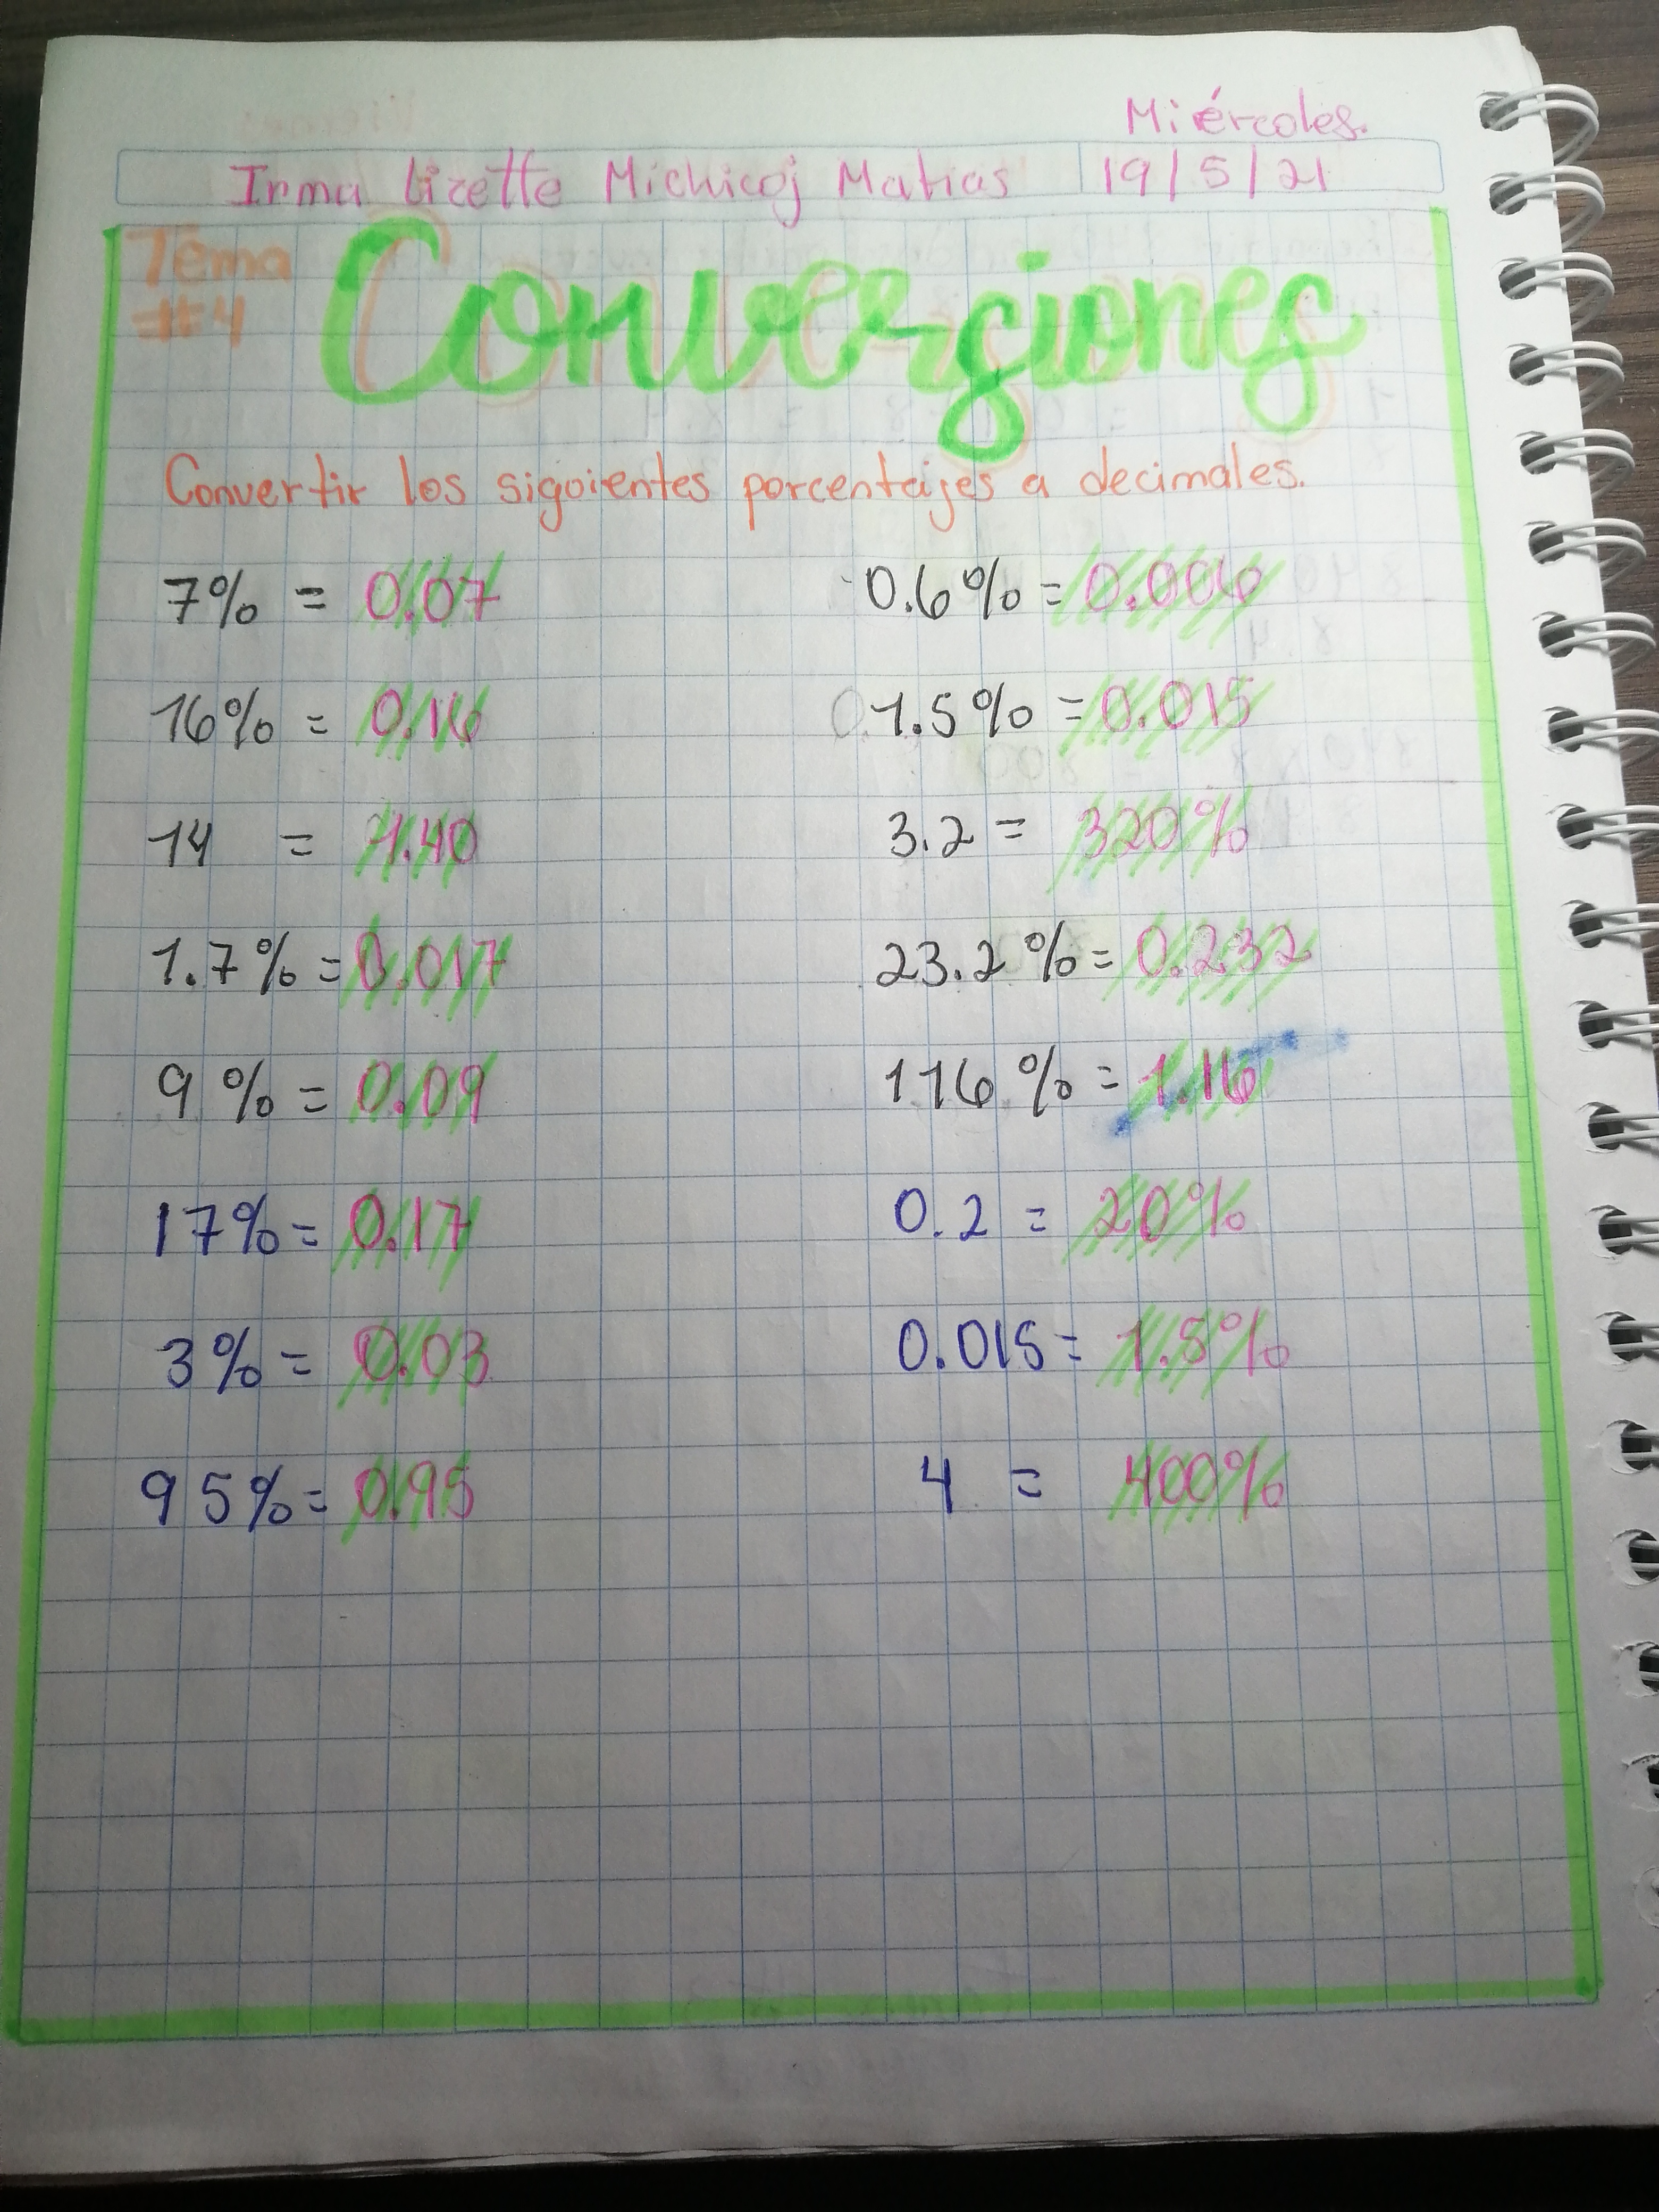 Miércoles.
Irma lizette Michicoj Matias 19/5/21
Tema
#4
Conversiones
Convertir los siguientes porcentajes a decimales.
7% = 0.07 0.6% = 0.006
16% = 0.16 1.5% = 0.015
14 = 1.40 3.2 = 320%
1.7% = 0.017 23.2% = 0.232
9% = 0.09 116% = 1.16
17% = 0.17 0.2 = 20%
3% = 0.03 0.015 = 1.5%
95% = 0.95 4 = 400%